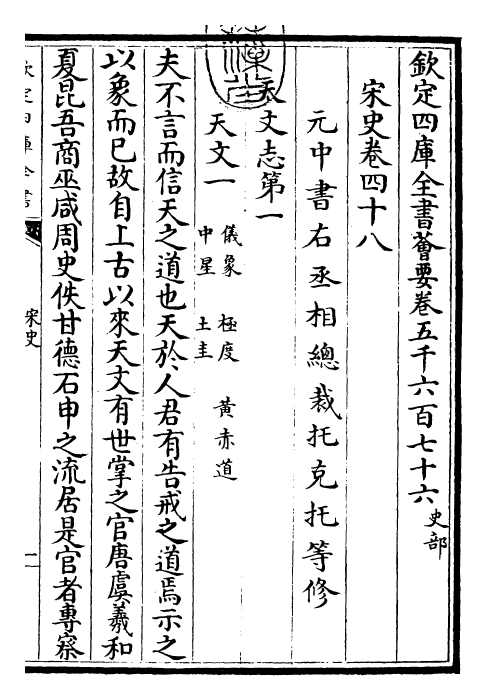 欽定四庫全書薈要卷五千六百七十六史部
宋史卷四十八
元中書右丞相總裁托克托等修
天文志第一
天文一儀象 極度 黃赤道
中星 土圭
夫不言而信天之道也天於人君有告戒之道焉示之
以象而已故自上古以來天文有世掌之官唐虞羲和
夏昆吾商巫咸周史佚甘德石申之流居是官者專察
欽定四庫全書
宋史
一